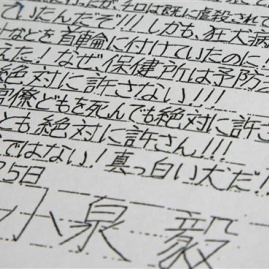 行ったが、チロは既に虐殺されて
ていたんだぞ!!!しかも、狂犬病
などを首輪に付けていたのに!
えた!なぜ保健所は予防
絶対に許さない!!!
官僚どもを死んでも絶対に許さ
とも絶対に許さん!!!
ではない!真っ白い犬だ!
5日
小泉 毅